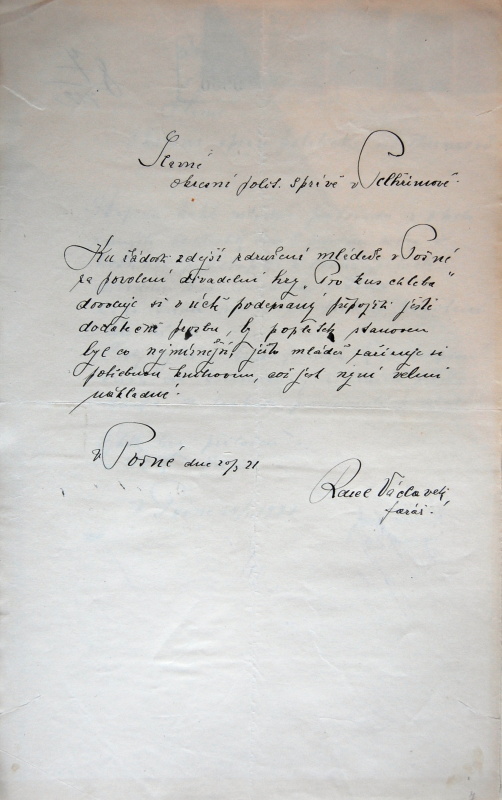 Slavné
okresní polit. správě v Pelhřimově.
Ku žádosti zdejší sdružení mládeže v Pošné
za povolení divadelní hry „Pro kus chleba"
dovoluje si v úctě podepsaný připojiti ještě
dodatečně prosbu, by poplatek stanoven
byl co nejmírnější, ježto mládež zařizuje si
potřebnou knihovnu, což jest nyní velmi
nákladné.
V Pošné dne 20/3 21
Karel Václavek
farář.